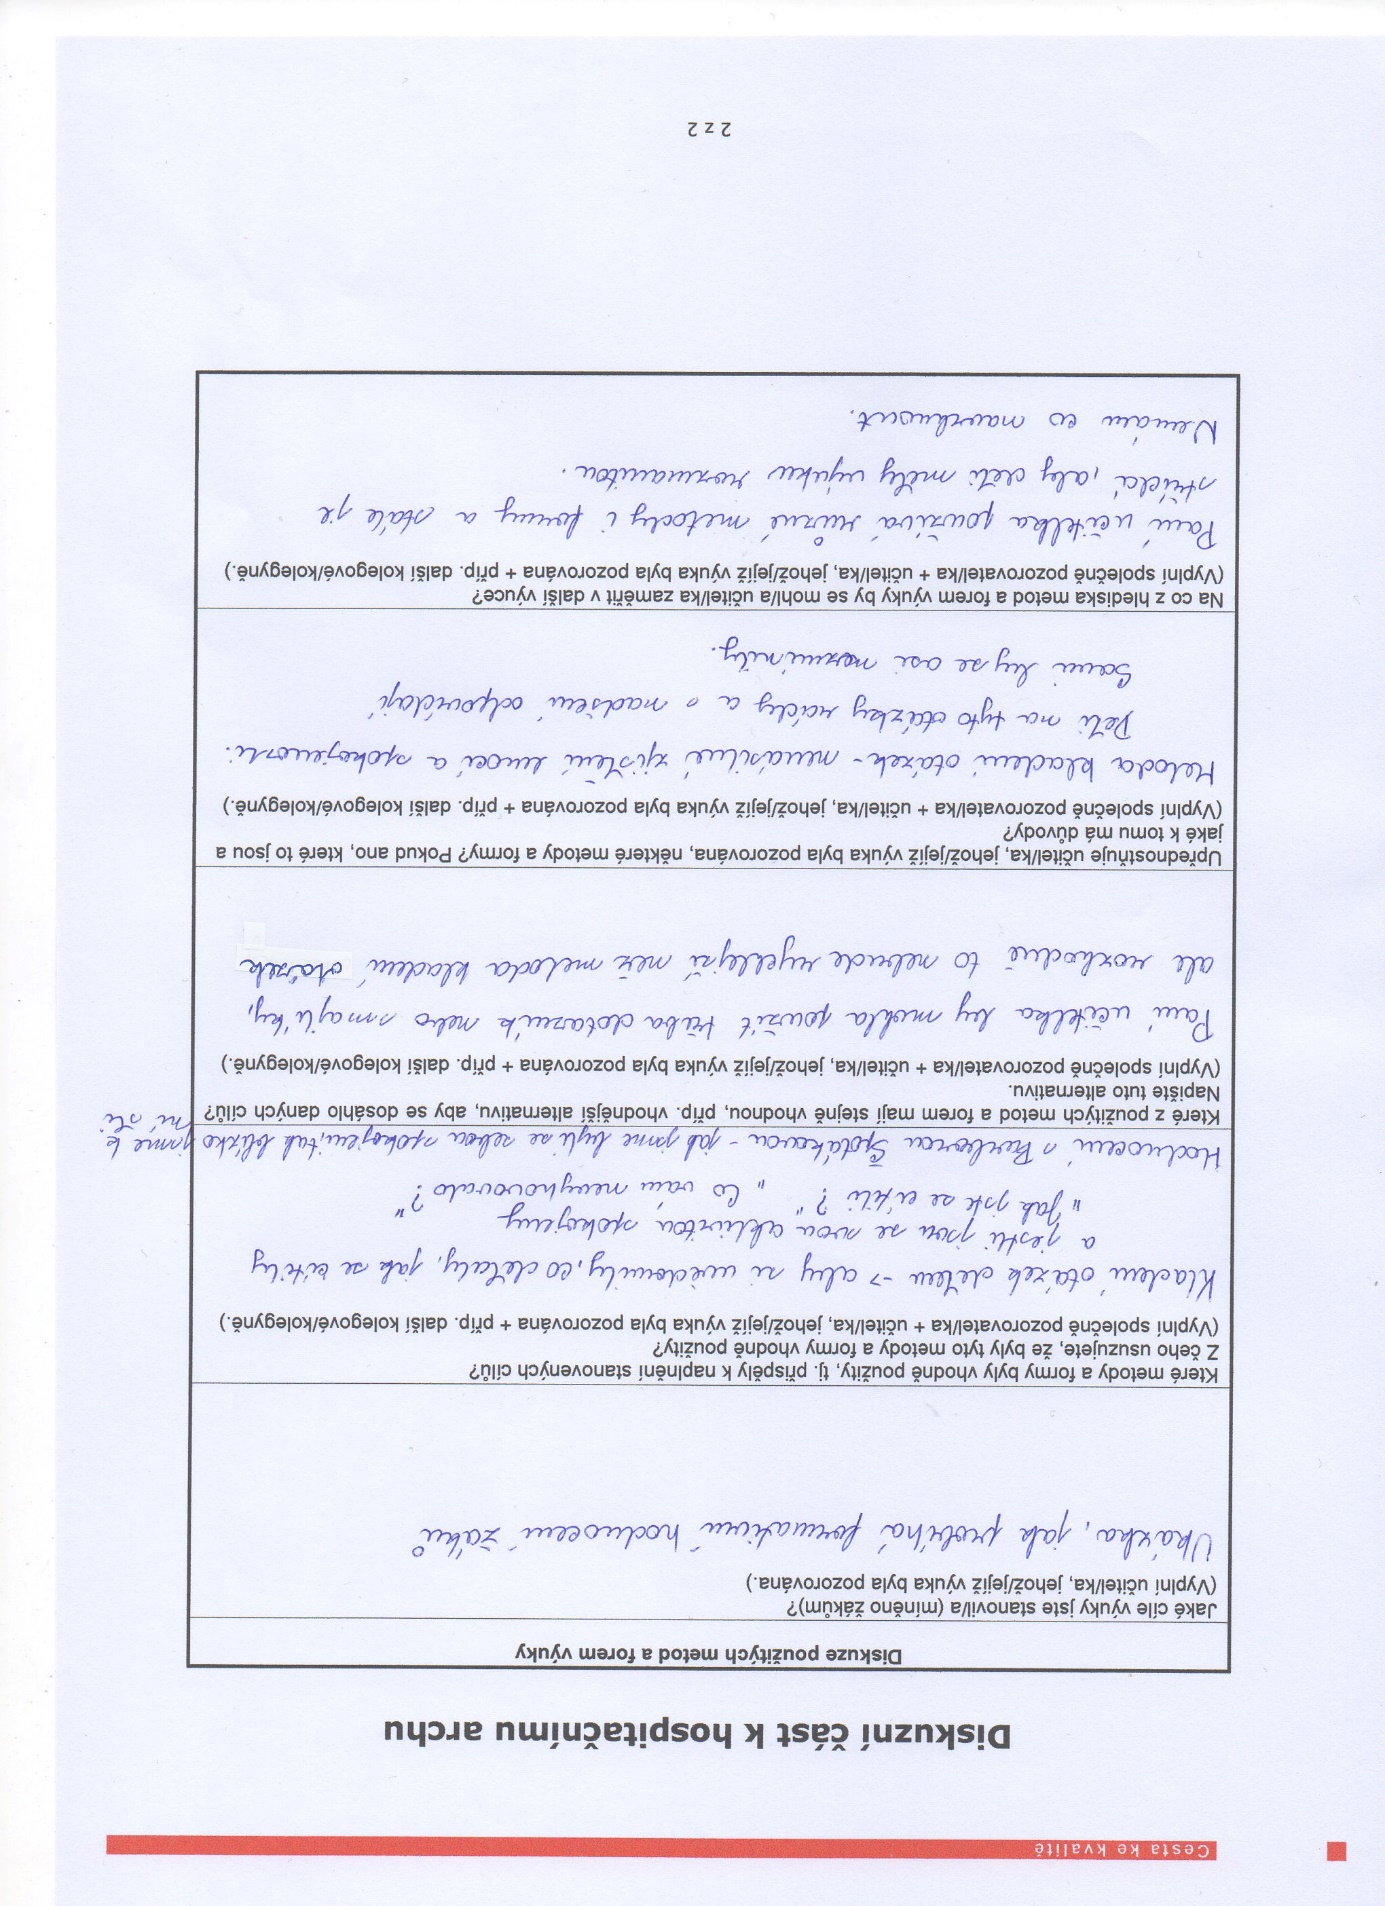 Cesta ke kvalitě
Diskuzní část k hospitačnímu archu
Diskuze použitých metod a forem výuky
Jaké cíle výuky jste stanovil/a (míněno žákům)?
(Vyplní učitel/ka, jehož/jejíž výuka byla pozorována.)
Ukázka, jak probíhá formativní hodnocení žáků
Které metody a formy byly vhodně použity, tj. přispěly k naplnění stanovených cílů?
Z čeho usuzujete, že byly tyto metody a formy vhodně použity?
(Vyplní společně pozorovatel/ka + učitel/ka, jehož/jejíž výuka byla pozorována + příp. další kolegové/kolegyně.)
Kladení otázek dětem -> aby si uvědomily, co dělaly, jak se cítily
a jestli jsou se svou aktivitou spokojeny
„Jak jste se cítili?" „Co vám nevyhovovalo?"
Hodnocení s Barborou Špotákovou - jak jsme byli se sebou spokojeni, tak blízko jsme k
ní šli
Které z použitých metod a forem mají stejně vhodnou, příp. vhodnější alternativu, aby se dosáhlo daných cílů?
Napište tuto alternativu.
(Vyplní společně pozorovatel/ka + učitel/ka, jehož/jejíž výuka byla pozorována + příp. další kolegové/kolegyně.)
Paní učitelka by mohla použít třeba dotazník nebo smajlíky,
ale rozhodně to nebude rychlejší než metoda kladení otázek
Upřednostňuje učitel/ka, jehož/jejíž výuka byla pozorována, některé metody a formy? Pokud ano, které to jsou a
jaké k tomu má důvody?
(Vyplní společně pozorovatel/ka + učitel/ka, jehož/jejíž výuka byla pozorována + příp. další kolegové/kolegyně.)
Metoda kladení otázek - nenásilné zjištění emocí a spokojenosti.
Děti na tyto otázky rády a s nadšení odpovídají
Sami by se asi nezmínily.
Na co z hlediska metod a forem výuky by se mohl/a učitel/ka zaměřit v další výuce?
(Vyplní společně pozorovatel/ka + učitel/ka, jehož/jejíž výuka byla pozorována + příp. další kolegové/kolegyně.)
Paní učitelka používá různé metody i formy a stále je
střídá, aby děti měly výuku rozmanitou.
Nemám co navrhnout.
2 z 2